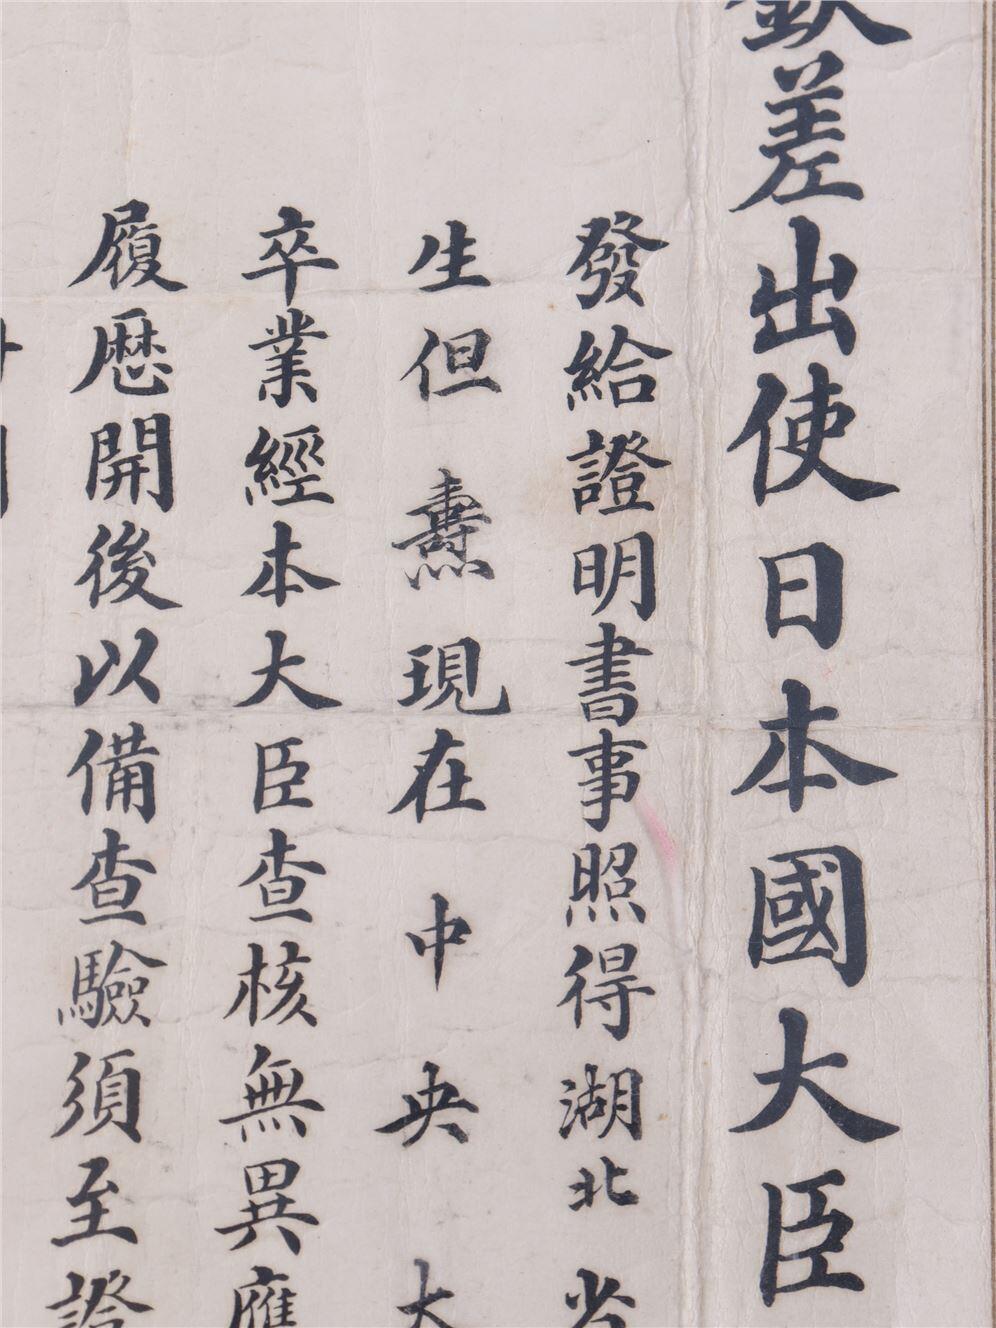 欽差出使日本國大臣
發給證明書事照得湖北省
生但燾現在中央大
卒業經本大臣查核無異應
履歷開後以備查驗須至證